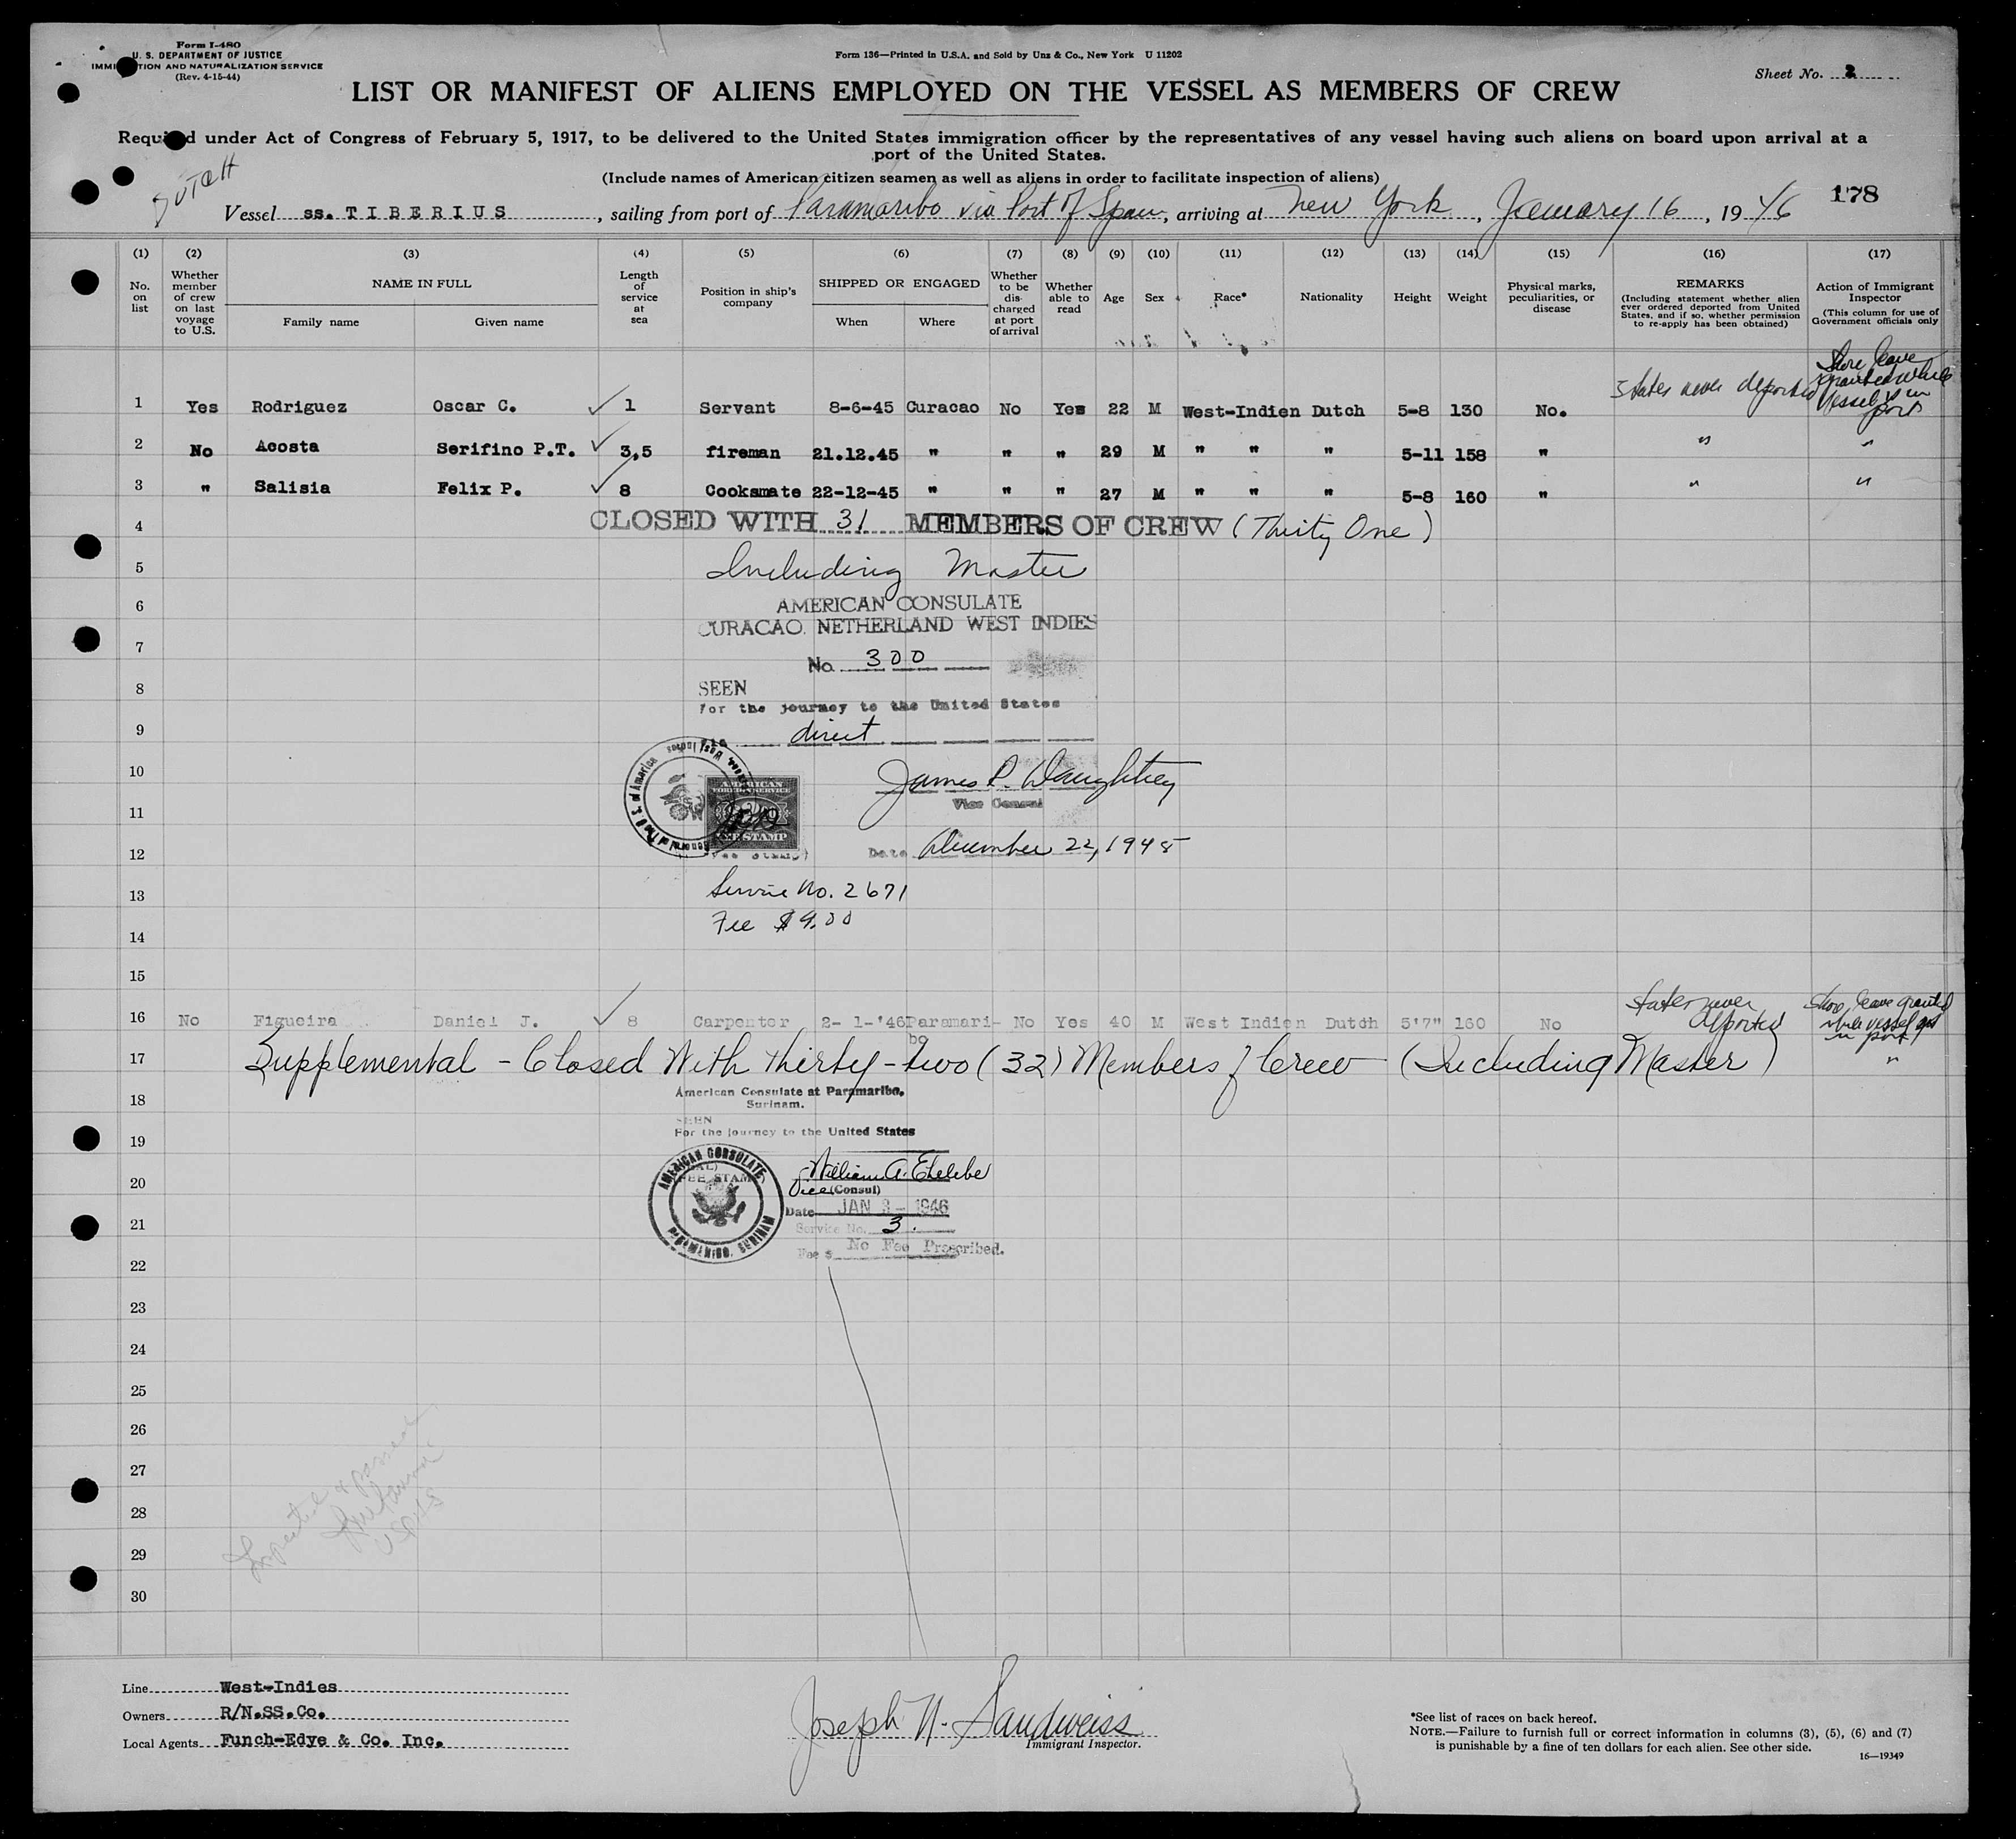 Form I-480
U. S. DEPARTMENT OF JUSTICE
IMMI TION AND NATURALIZATION SERVICE
(Rev. 4-15-44)
Form 136—Printed in U.S.A. and Sold by Unz & Co., New York U 11202
Sheet No. 2
LIST OR MANIFEST OF ALIENS EMPLOYED ON THE VESSEL AS MEMBERS OF CREW
Requi d under Act of Congress of February 5, 1917, to be delivered to the United States immigration officer by the representatives of any vessel having such aliens on board upon arrival at a
port of the United States.
(Include names of American citizen seamen as well as aliens in order to facilitate inspection of aliens)
DUTCH
178
Vessel ss. TIBERIUS, sailing from port of Paramaribo via Port of Spain, arriving at New York, January 16, 1946
(1) (2) (3) (4) (5) (6) (7) (8) (9) (10) (11) (12) (13) (14) (15) (16) (17)
No. on list
Whether member of crew on last voyage to U.S.
NAME IN FULL
Family name Given name
Length of service at sea
Position in ship's company
SHIPPED OR ENGAGED
When Where
Whether to be discharged at port of arrival
Whether able to read
Age
Sex
Race*
Nationality
Height
Weight
Physical marks, peculiarities, or disease
REMARKS
(Including statement whether alien ever ordered deported from United States, and if so, whether permission to re-apply has been obtained)
Action of Immigrant Inspector
(This column for use of Government officials only
1 Yes Rodriguez Oscar C. 1 Servant 8-6-45 Curacao No Yes 22 M West-Indien Dutch 5-8 130 No. States never deported Shore leave granted while vessel is in port
2 No Acosta Serifino P.T. 3,5 fireman 21.12.45 " " " 29 M " " " 5-11 158 " " "
3 " Salisia Felix P. 8 Cooksmate 22-12-45 " " " 27 M " " " 5-8 160 " " "
4 CLOSED WITH 31 MEMBERS OF CREW (Thirty One)
5 Including Master
6 AMERICAN CONSULATE
CURACAO, NETHERLAND WEST INDIES
7 No. 300
8 SEEN
For the journey to the United States
9 via direct
10 James P. Daughtrey
Vice Consul
11 AMERICAN FOREIGN SERVICE FEE STAMP
12 (Fee Stamp) Date December 22, 1945
13 Service No. 2671
Fee $9.00
14
15
16 No Figueira Daniel J. 8 Carpenter 2-1-'46 Paramaribo No Yes 40 M West Indien Dutch 5'7" 160 No States never deported Shore leave granted while vessel is in port
17 Supplemental - Closed With Thirty-two (32) Members of Crew (Including Master) "
18 American Consulate at Paramaribo,
Surinam.
SEEN
19 For the journey to the United States
AMERICAN CONSULATE
PARAMARIBO, SURINAM
20 William A.
Vice (Consul)
Date JAN 3 - 1946
21 Service No. 3.
Fee $ No Fee Prescribed.
22
23
24
25
26
27
28
29
30
Inspected & passed
USPHS
Line West-Indies
Owners R/N.SS.Co.
Local Agents Funch-Edye & Co. Inc.
Joseph N. Sandweiss
Immigrant Inspector.
*See list of races on back hereof.
NOTE.—Failure to furnish full or correct information in columns (3), (5), (6) and (7)
is punishable by a fine of ten dollars for each alien. See other side.
16—19349